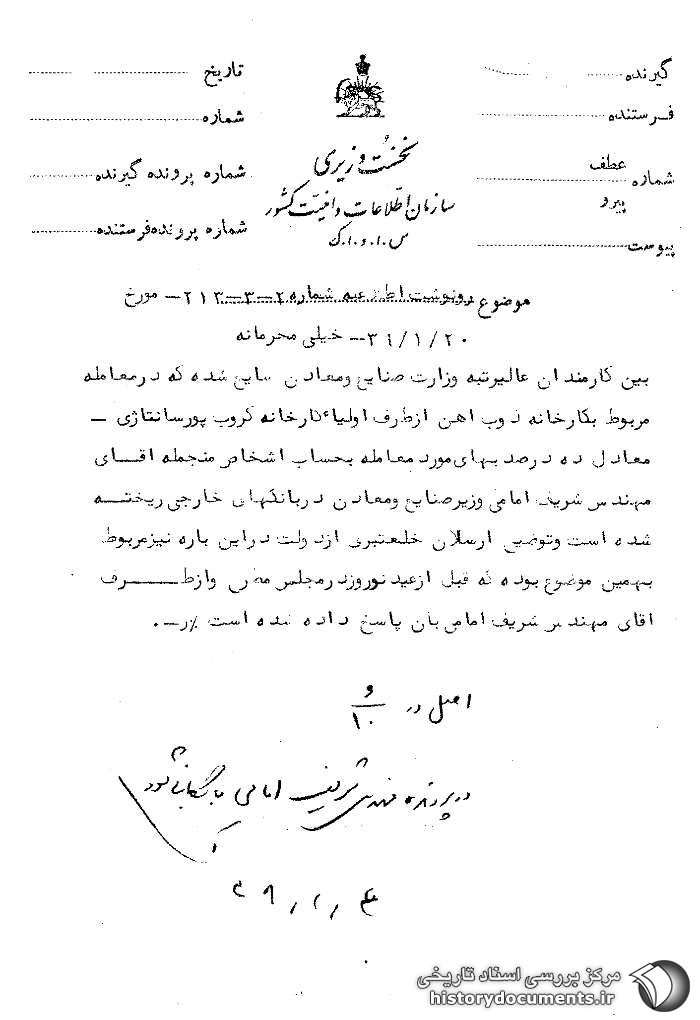 گیرنده
فرستنده
شماره عطف
پیرو
پیوست
نخست وزیری
سازمان اطلاعات و امنیت کشور
س.ا.و.ا.ک
تاریخ
شماره
شماره پرونده گیرنده
شماره پرونده فرستنده
موضوع رونوشت اطلاعیه شماره ۲-۳-۲۱۳- مورخ
۳۹/۱/۲۰-- خیلی محرمانه
بین کارمندان عالیرتبه وزارت صنایع ومعادن شایع شده که درمعامله
مربوط بکارخانه ذوب اهن ازطرف اولیاء کارخانه کروپ پورسانتاژی -
معادل ده درصد بهای مورد معامله بحساب اشخاص منجمله اقای
مهندس شریف امامی وزیرصنایع ومعادن دربانکهای خارجی ریخته
شده است وتوضیح ارسلان خلعتبری ازدولت دراین باره نیزمربوط
بهمین موضوع بوده که قبل ازعید نوروزدرمجلس مطرح وازطرف
اقای مهندس شریف امامی بان پاسخ داده شده است ٪ر-.
اصل در و/۱۰
در پرونده مهندس شریف امامی بایگانی شود
۳۹/۲/۴
مرکز بررسی اسناد تاریخی
historydocuments.ir